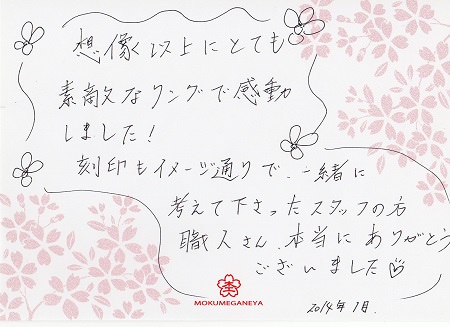 想像以上にとても
素敵なリングで感動
しました!
刻印もイメージ通りで、一緒に
考えて下さったスタッフの方
職人さん、本当にありがとう
ございました♡
MOKUMEGANEYA
2014年1月.